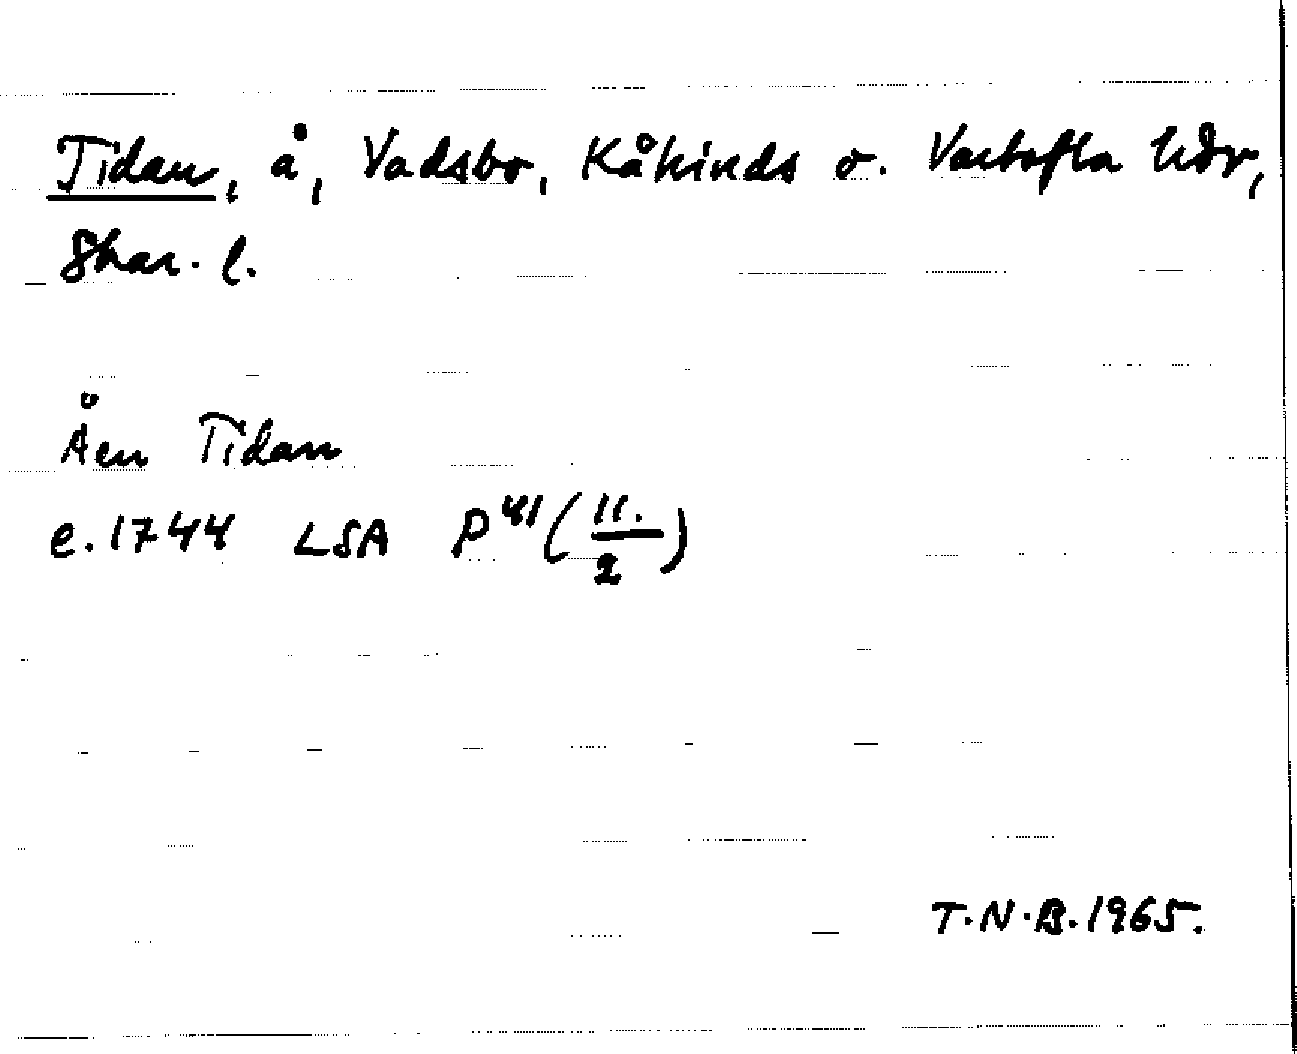 Tidan, å, Vadsbo, Kåkinds o. Vartofta hdr,
Skar. l.
Åen Tidan
e. 1744 LSA P41 (11./2)
T.N.B. 1965.